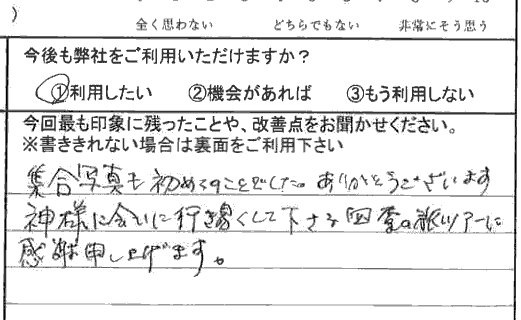 )
全く思わない どちらでもない 非常にそう思う
今後も弊社をご利用いただけますか？
①利用したい ②機会があれば ③もう利用しない
今回最も印象に残ったことや、改善点をお聞かせください。
※書ききれない場合は裏面をご利用下さい
集合写真も初めてのことでした。ありがとうございます
神様に会いに行き易くして下さる四季の旅ツアーに
感謝申し上げます。